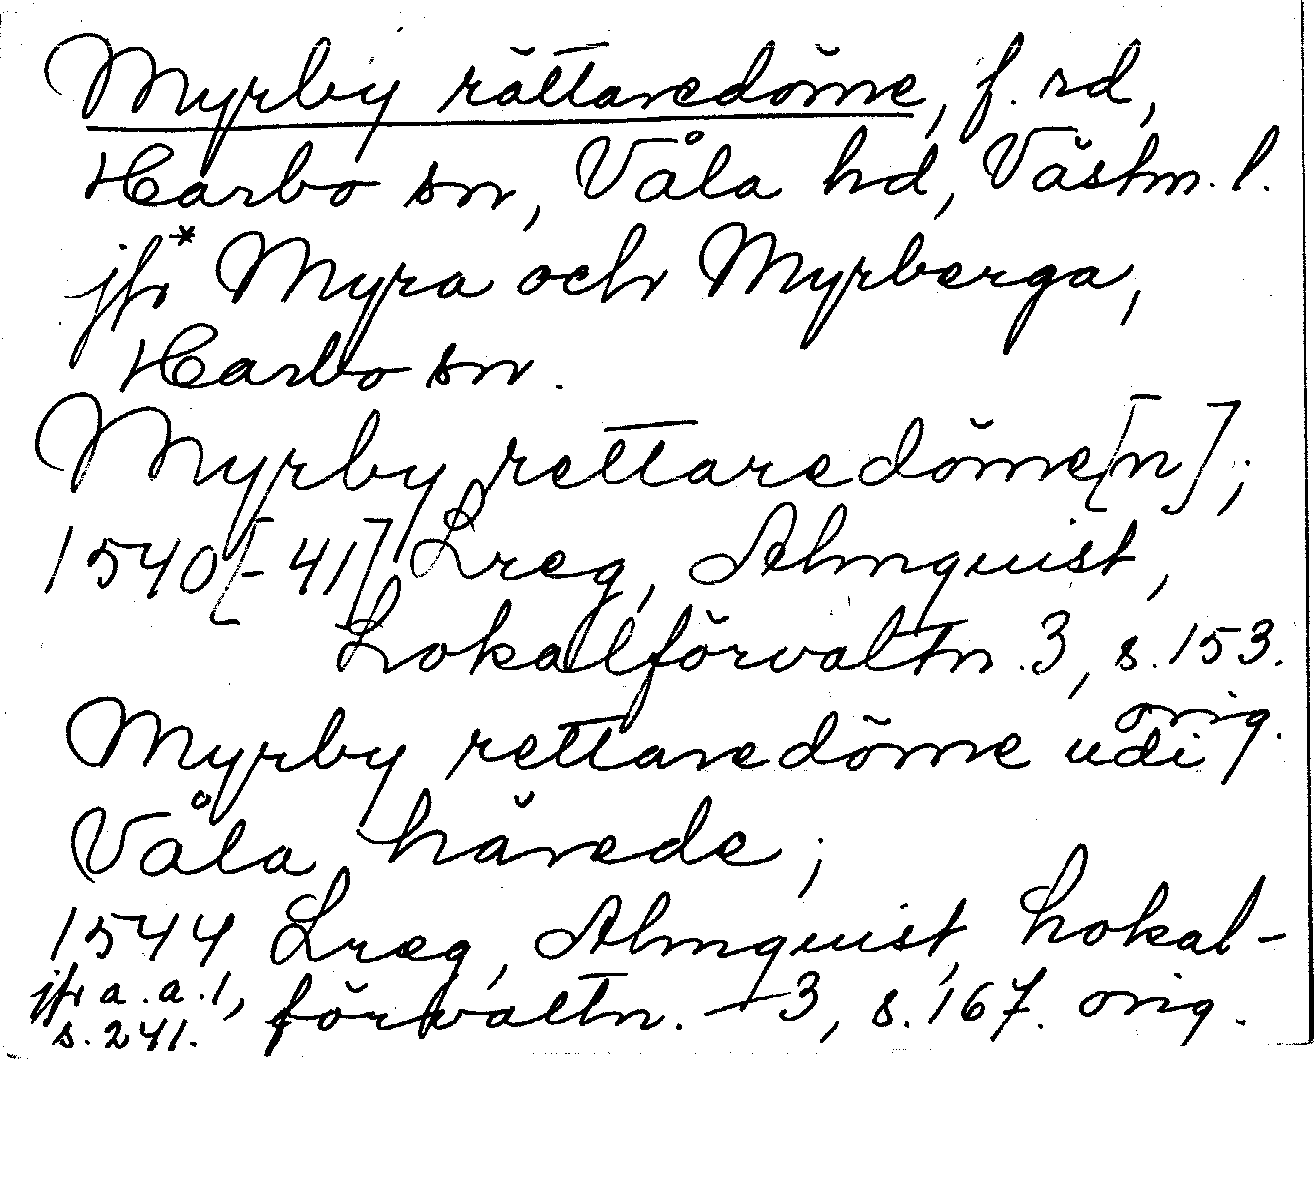 Myrby rättaredöme, f. rd,
Harbo sn, Våla hd, Västm. l.
jfr *Myra och Myrberga,
Harbo sn.
Myrby rettaredöme[n];
1540[-41] Lreg, Almquist,
Lokalförvaltn. 3, s. 153.
orig.
Myrby rettaredöme udi
Våla härede;
1544 Lreg, Almquist, Lokal-
förvaltn. 3, s. 167. orig.
jfr a. a. 1,
s. 241.